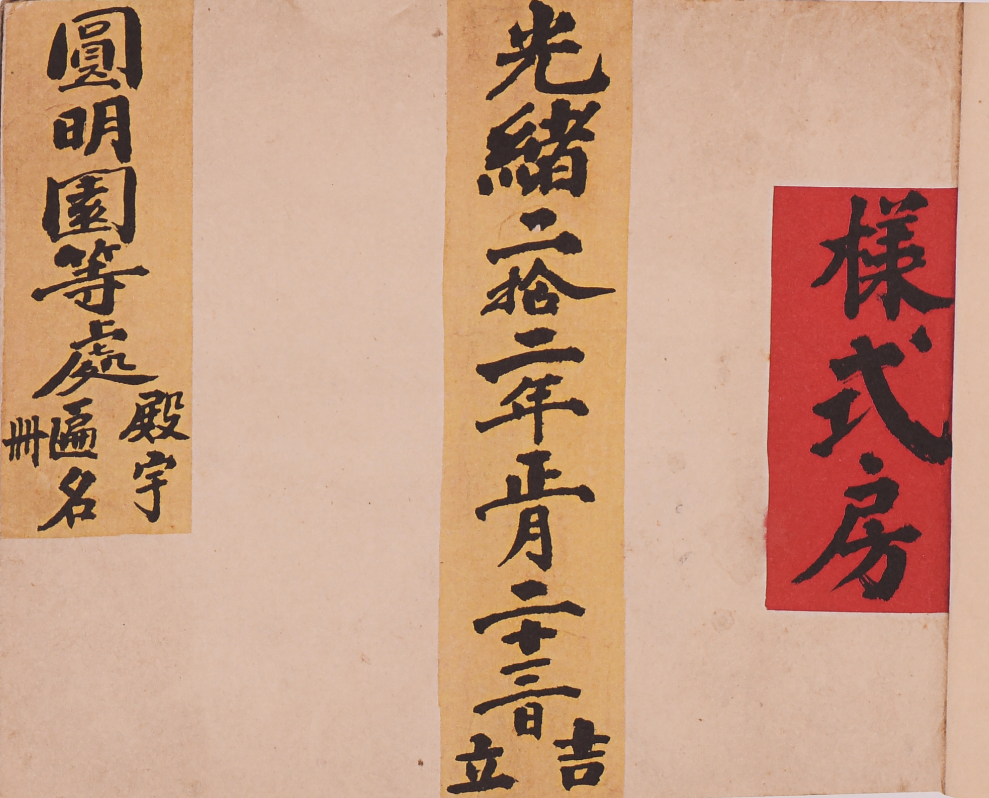 樣式房
光緒二拾二年正月二十三日吉立
圓明園等處殿宇匾名冊